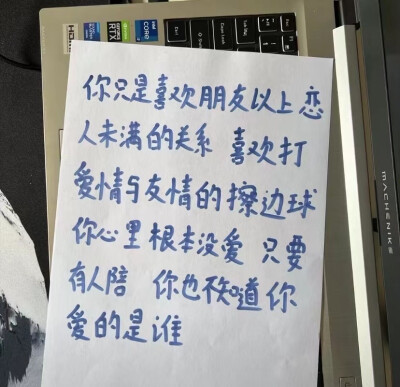 HDMI
GEFORCE RTX
intel CORE i7
你只是喜欢朋友以上 恋
人未满的关系 喜欢打
爱情与友情的擦边球
你心里根本没爱 只要
有人陪 你也不知道你
爱的是谁
MACHENIKE